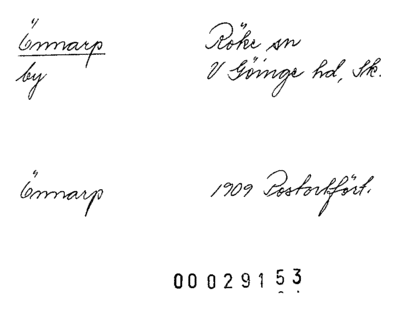 Önnarp Röke sn
by V Göinge hd, Sk.
Önnarp 1909 Postortfört.
00 0291 53